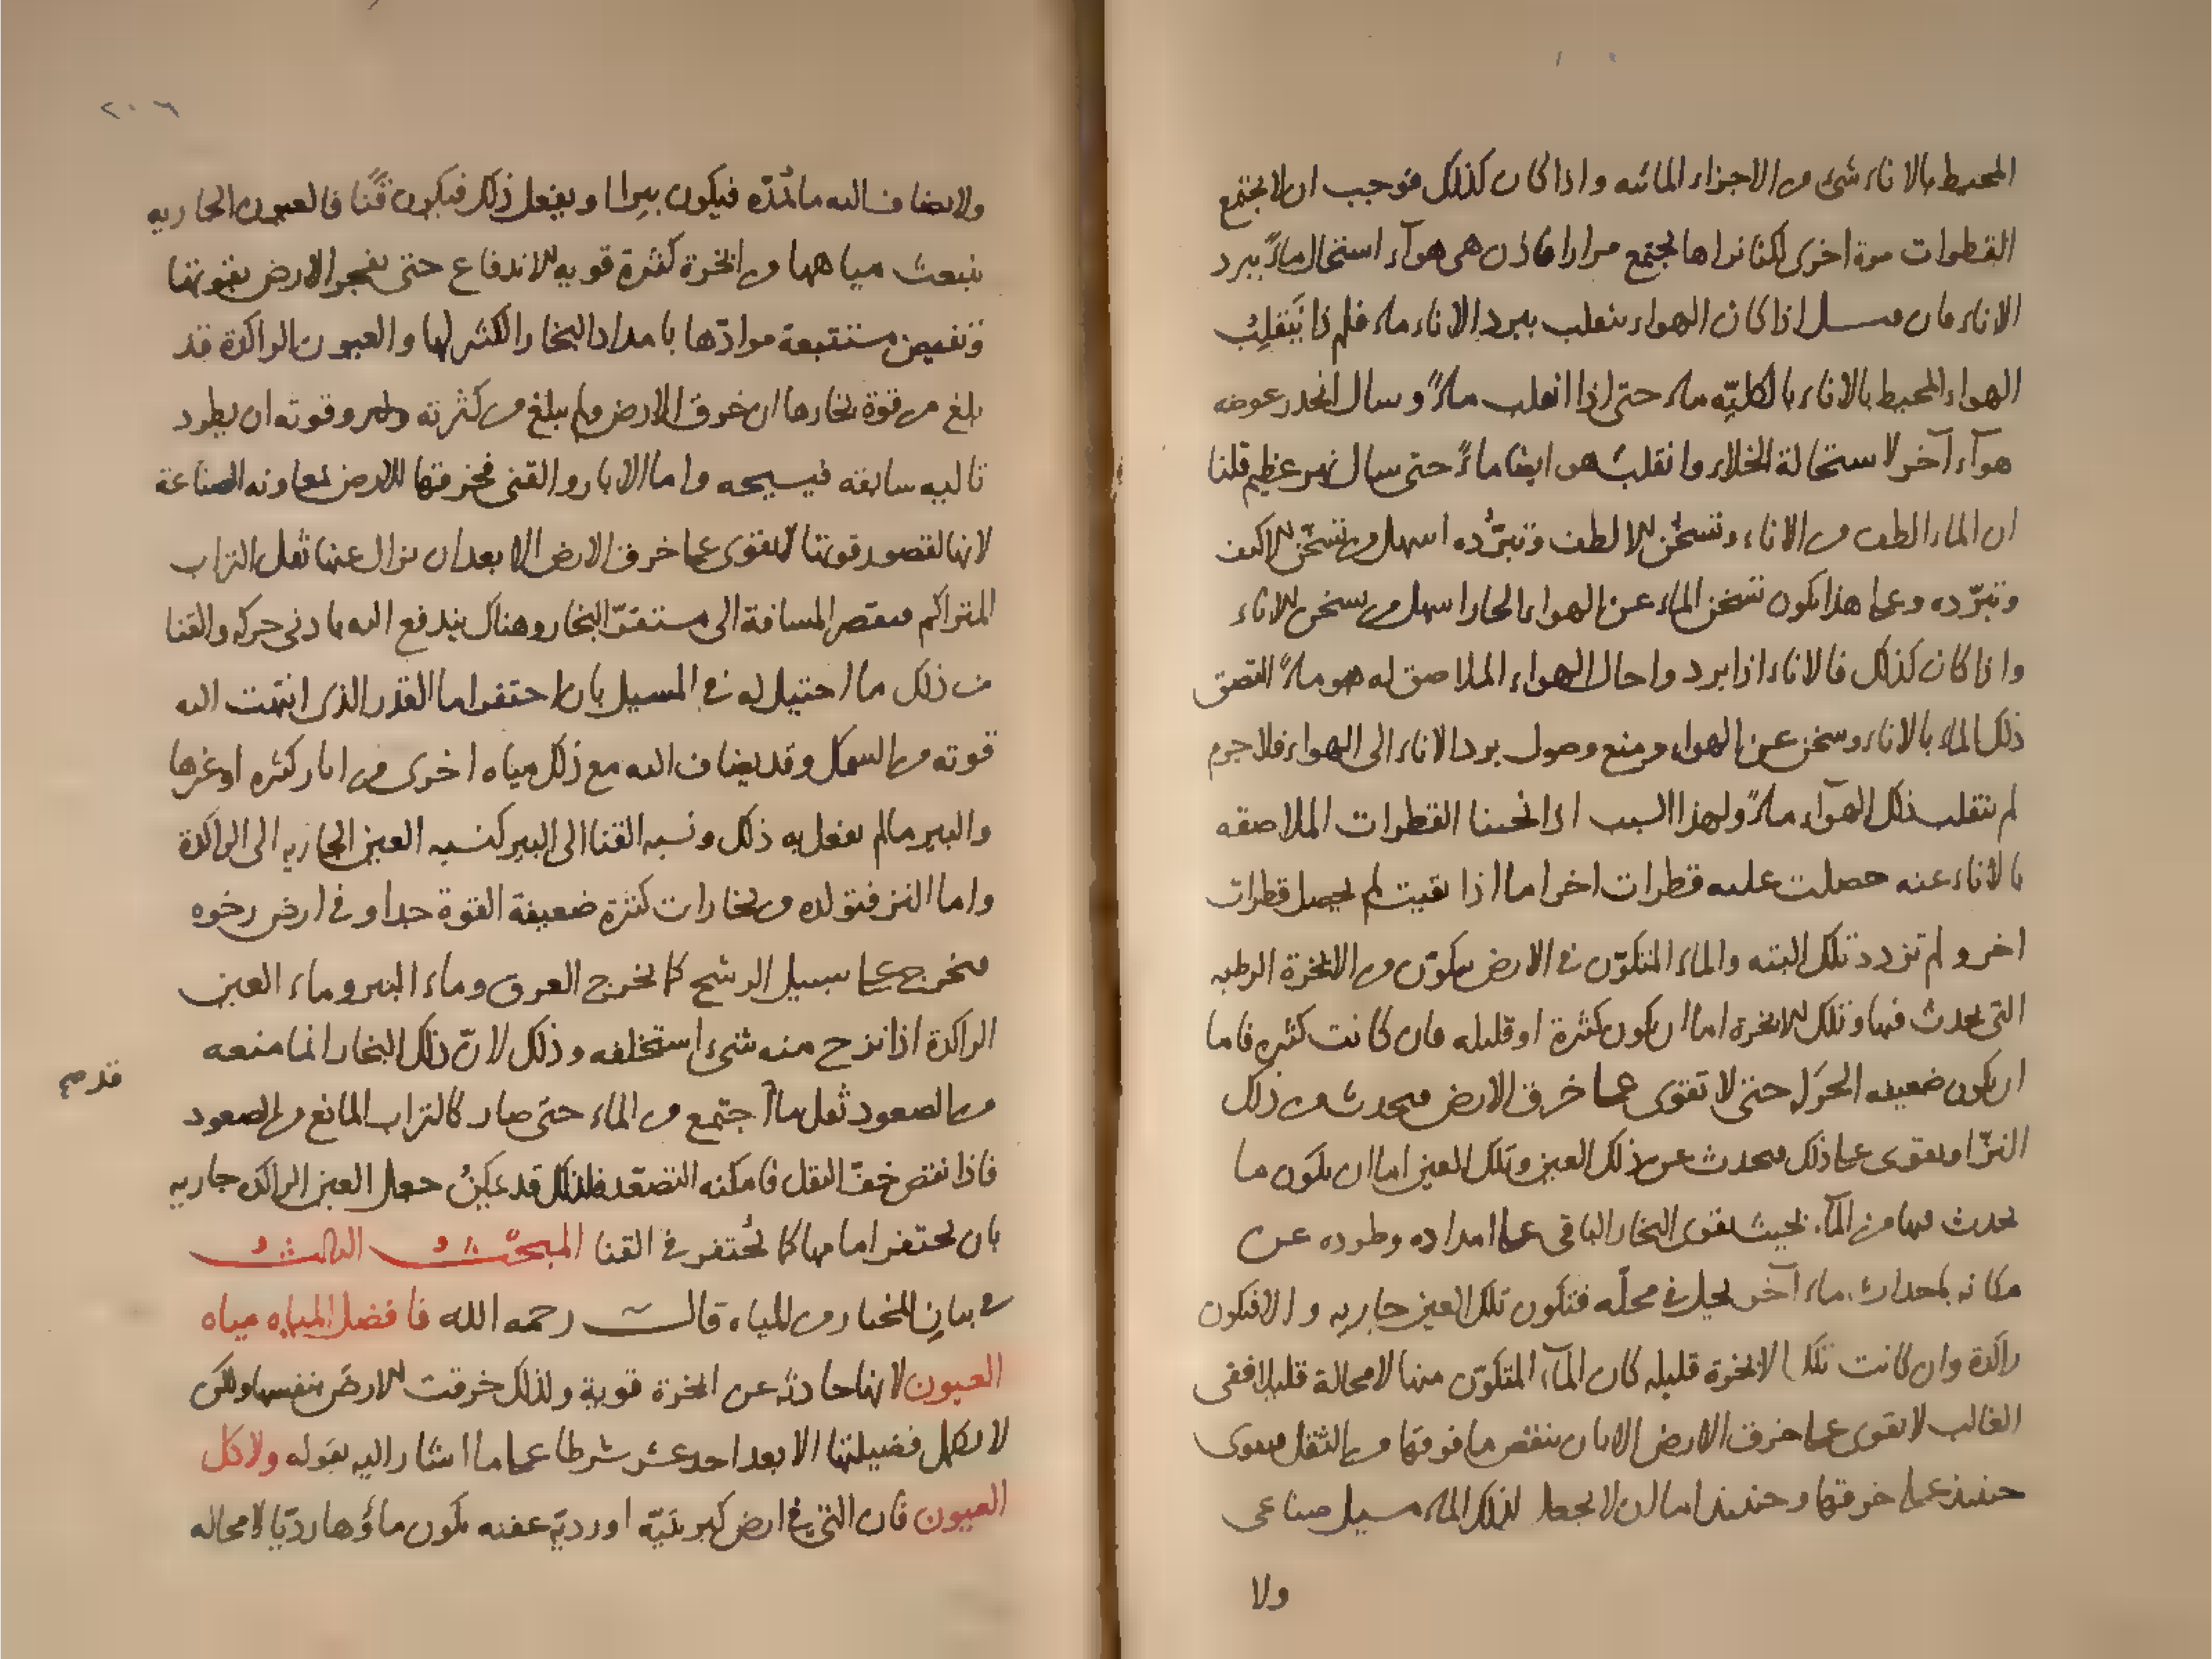 المحيط بالاناء شئ من الاجزاء المائيه واذا كان كذلك فوجب ان لا يجتمع
القطرات مرة اخرى لكنا نراها يجتمع مرارا فاذن هى هوآء استحال ماءً ببرد
الاناء فان قيل اذا كان الهواء ينقلب ببرد الاناء ماء فلم لا يَنقلِبُ
الهواء المحيط بالاناء بالكليّه ماء حتى اذا انقلب ماءً وسال انحدر عوضه
هوآء آخر لاستحالة الخلاء وانقلبَ هو ايضا ماءً حتى سال نهر عظيم قلنا
ان الماء الطف من الاناء وتسخّن الالطف وتبرّده اسهل من تسخّن الاكثف
وتبرّده وعلى هذا يكون تسخن الماء عن الهواء الحار اسهل من تسخن الاناء
واذا كان كذلك فالاناء اذا برد واحال الهواء الملاصق له هو ماءً التصق
ذلك الماء بالاناء وسخن عن الهواء ومنع وصول برد الاناء الى الهواء فلا جرم
لم ينقلب ذلك الهوآء ماءً ولهذا السبب اذا نحينا القطرات الملاصقه
بالاناء عنه حصلت عليه قطرات اخر اما اذا بقيت لم يحصل قطرات
اخر ولم تزدد تلك البته والماء المتكوّن فى الارض يتكوّن من الابخرة الرطبه
التى يحدث فيها وتلك الابخرة اما ان يكون كثيرة او قليله فان كانت كثيره فاما
ان يكون ضعيفه الحرَكه حتى لا تقوى على خرق الارض فيحدث من ذلك
النزّ او يقوى على ذلك فيحدث عن ذلك العين وتلك العين اما ان يكون ما
يحدث فيها من المآء بحيث يقوى البخار الباقى على امداده وطرده عن
مكانه باحداث ماء آخر يحل فى محلّه فتكون تلك العين جاريه والا فيكون
راكدة وان كانت تلك الابخرة قليله كان المآء المتكوّن منها لا محالة قليلا ففى
الغالب لا يقوى على خرق الارض الا بان ينقص ما فوقها من الثقل فيقوى
حينئذ على خرقها وحينئذ اما ان لا يجعل لذلك الماء مسيل صناعى
ولا
٢٠٦
ولا يضاف اليه ما يُمدّه فيكون بيرا او يفعل ذلك فيكون قًنا فالعيون الجاريه
ينبعث مياهها من ابخرة كثيرة قويه الاندفاع حتى يفجر الارض بقوتها
وتفيض مستتبعة موادّها بامداد البخار الكثير لها والعيون الراكدة قد
بلغ من قوة بخارها ان خرق الارض ولم يبلغ من كثرته وقوته ان يطرد
تاليه سابقه فيسيحه واما الابار والقنى فخرقها الارض بمعاونه الصناعة
لانها لقصور قوتها لا يقوى على خرق الارض الا بعد ان يزال عنها ثقل التراب
المتراكم فيقصر المسافة الى مستقرّ البخار وهناك يندفع اليه بادنى حركه والقنا
من ذلك ما احتيل له فى المسيل بان احتفر اما القدر الذى انتهت اليه
قوته من السهل وقد يضاف اليه مع ذلك مياه اخرى من ابار كثيره او غيرها
والبير ما لم يفعل به ذلك ونسبه القنا الى البير كنسبه العين الجاريه الى الراكدة
واما النز فتولده من بخارات كثيرة ضعيفة القوة جدا و فى ارض رخوه
فيخرج على سبيل الرشح كما يخرج العرق وماء البير وماء العين
الراكدة اذا نزح منه شىء استخلفه وذلك لانّ ذلك البخار انما منعه
من الصعود ثقل ما اجتمع من الماء حتى صار كالتراب المانع من الصعود
فاذا نقص خفّ الثقل فامكنه التصعّد فلذلك قد يمكنُ جعل العين الراكدة جاريه
قدم
بان يحتفر امامها كما يُحتفر فى القنا المبحث الثالث
فى بيان المختار من المياه قال رحمه الله فافضل المياه مياه
العيون لانها حادثه عن ابخرة قوية ولذلك خرقت الارض بنفسها ولكن
لا يكمل فضيلتها الا بعد احد عشر شرطا على ما اشار اليه بقوله ولا كل
العيون فان التى فى ارض كبريتيّه او رديّه عفنه يكون ماؤها رديّا لا محاله